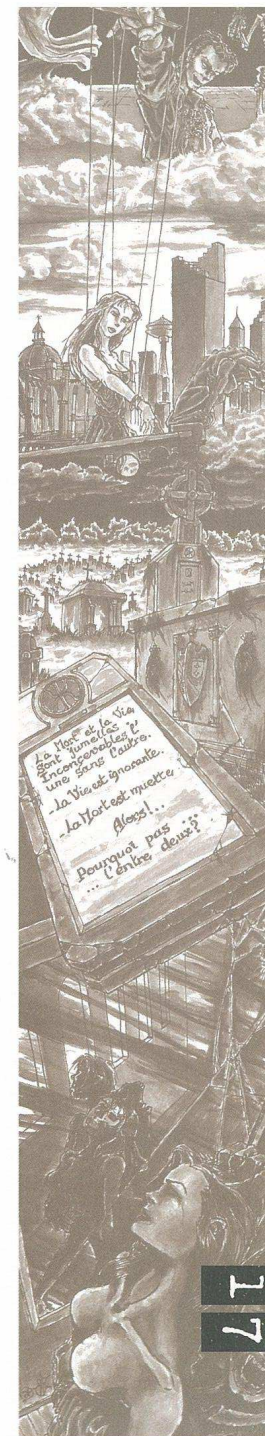 La Mort et la Vie
Sont jumelles
Inconcevables l'
une sans l'autre.
_La Vie est ignorante.
_La Mort est muette
Alors!...
Pourquoi pas
... l'entre deux?
17